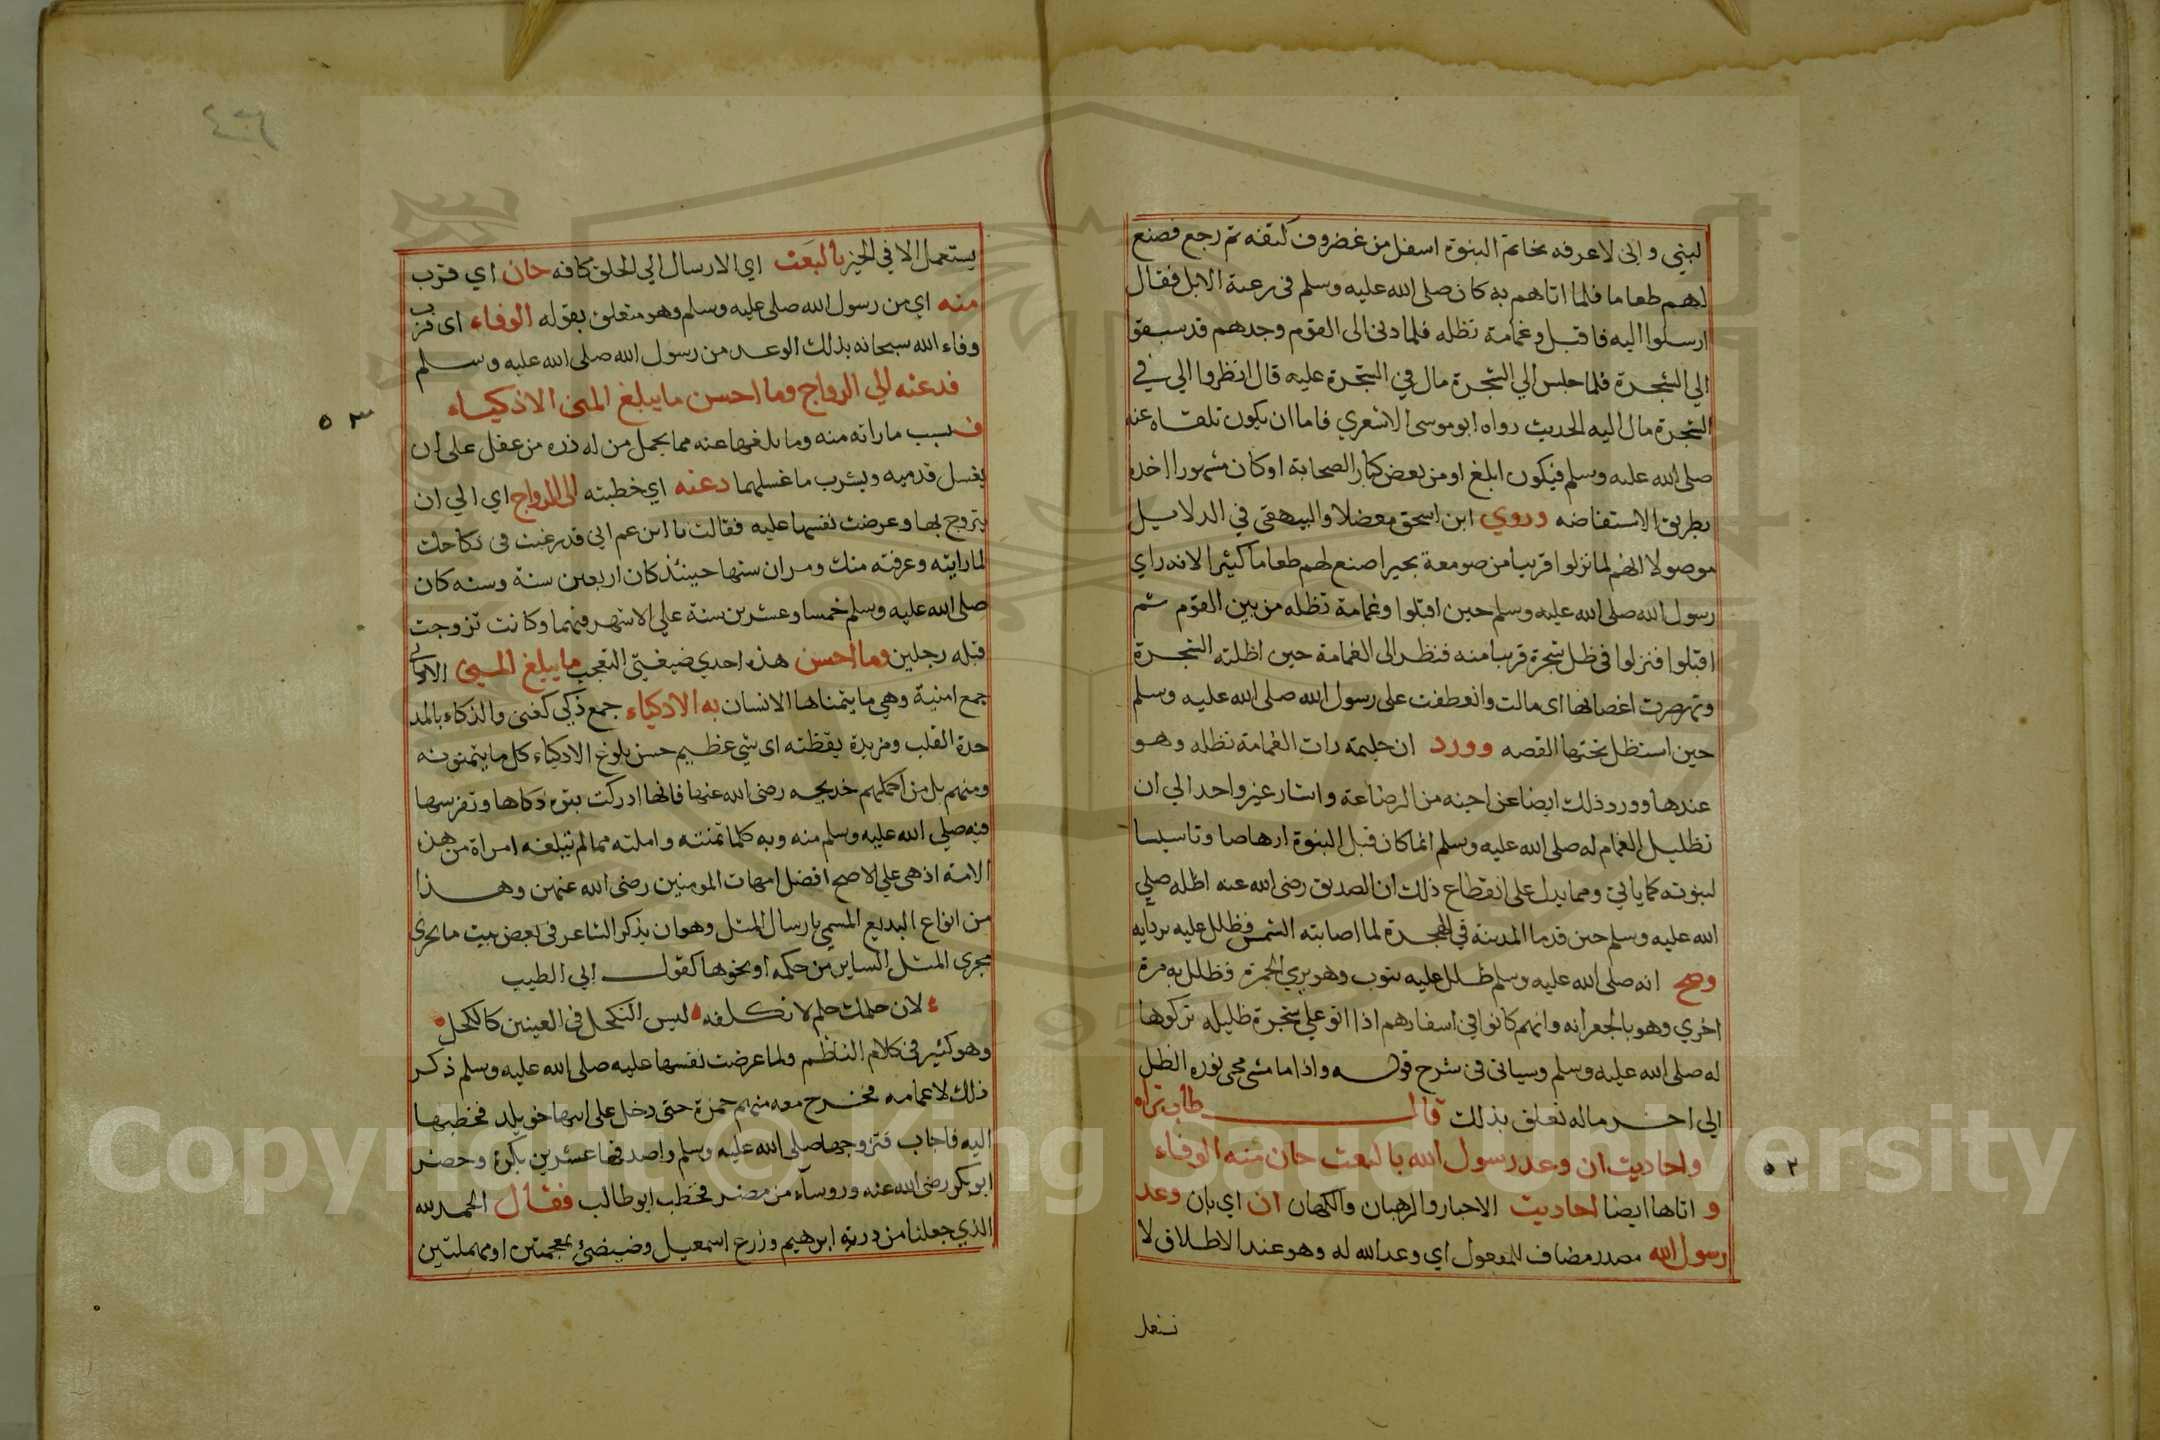 لبني واني لاعرفه بخاتم النبوة اسفل من غضروف كتفه ثم رجع فصنع
لهم طعاما فلما اتاهم به كان صلى الله عليه وسلم في رعية الابل فقال
ارسلوا اليه فاقبل وغمامة تظله فلما دنى الى القوم وجدهم قد سبقوا
الي الشجرة فلما جلس الي الشجرة مال في الشجرة عليه قال انظروا الي في
الشجرة مال اليه الحديث رواه ابو موسى الاشعري فاما ان يكون تلقاه عنه
صلى الله عليه وسلم فيكون ابلغ او من بعض كبار الصحابة او كان مشهورا اخذه
بطريق الاستفاضه وروي ابن اسحق معضلا والبيهقي في الدلايل
موصولا انهم لما نزلوا قريبا من صومعة بحيرا صنع لهم طعاما كثيرا لانه راي
رسول الله صلى الله عليه وسلم حين اقبلوا وغمامة تظله من بين القوم ثم
اقبلوا فنزلوا في ظل شجرة قريبا منه فنظر الى الغمامة حين اظلته الشجرة
وتهصرت اغصانها اى مالت وانعطفت على رسول الله صلى الله عليه وسلم
حين استظل تحتها القصه وورد ان حليمة رات الغمامة تظله وهو
عندها وورد ذلك ايضا عن اخيه من الرضاعة واشار غير واحد الي ان
تظليل الغمام له صلى الله عليه وسلم انما كان قبل النبوة ارهاصا وتاسيسا
لنبوته كما ياتي ومما يدل على انقطاع ذلك ان الصديق رضى الله عنه اظله صلى
الله عليه وسلم حين قدما المدينة في الهجرة لما اصابته الشمس فظلل عليه بردايه
وصح انه صلى الله عليه وسلم ظلل عليه بثوب وهو يرمي الجمرة وظلل به مرة
اخري وهو بالجعرانه وانهم كانوا في اسفارهم اذا اتو علي شجرة ظليله تركوها
له صلى الله عليه وسلم وسياتى فى شرح قوله واذا ما مشى محى نوره الظل
الي اخر ماله تعلق بذلك قال طاب ثراه
واحاديث ان وعد رسول الله بالبعث حان منه الوفاء
و اتاها ايضا احاديث الاحبار والرهبان والكهان ان اي بان وعد
رسول الله مصدر مضاف للمفعول اي وعد الله له وهو عند الاطلاق لا
٥٢
يستعمل الا في الخير بالبعث اي الارسال الي الخلق كافه حان اي قرب
منه اي من رسول الله صلى عليه وسلم وهو متعلق بقوله الوفاء اى قرب
وفاء الله سبحانه بذلك الوعد من رسول الله صلى الله عليه وسلم
فدعته الي الزواج وما احسن ما يبلغ المنى الاذكياء
٥٣
فبسبب ما راته منه وما بلغها عنه مما يحمل من له ذره من عقل على ان
يغسل قدميه ويشرب ما غسلهما دعته اي خطبته الى الزواج اي الي ان
يتزوج بها وعرضت نفسها عليه فقالت يا ابن عم انى قد رغبت في نكاحك
لما رايته وعرفته منك ومر ان سنها حينئذ كان اربعين سنة وسنه كان
صلى الله عليه وسلم خمسا وعشرين سنة على الاشهر فيهما وكانت تزوجت
قبله رجلين وما احسن هذه احدي ضيغتي التعجب ما يبلغ المني الاماني
جمع امنية وهي ما يتمناها الانسان به الاذكياء جمع ذكي كغنى والذكاء بالمد
حدة القلب ومزيدة يقظته اى شي عظيم حسن بلوغ الاذكياء كل ما يتمنونه
ومنهم بل من اكملهم خديجه رضى الله عنها فانها ادركت بقوة ذكاها وتفرسها
فيه صلى الله عليه وسلم منه وبه كلما تمنته واملته مما لم تبلغه امراة من هذه
الامة اذ هى علي الاصح افضل امهات المومنين رضى الله عنهن وهذا
من انواع البديع المسمي بارسال المثل وهو ان يذكر الشاعر فى بعض بيت ما يجرى
مجرى المثل الساير من حكمه او نحوها كقول ابي الطيب
لان حلمك حلم لا تكلفه ليس التكحل في العينين كالكحل
وهو كثير في كلام الناظم ولما عرضت نفسها عليه صلى الله عليه وسلم ذكر
ذلك لاعمامه فخرج معه منهم حمزة حتى دخل على ابيها خويلد فخطبها
اليه فاجاب فتزوجها صلى الله عليه وسلم واصدقها عشرين بكرة وحضر
ابو بكر رضى الله عنه وروساء من مضر فخطب ابو طالب فقال الحمد لله
الذي جعلنا من ذرية ابرهيم وزرع اسمعيل وضيضئ بمعجمتين او مهملتين
Copyright © King Saud University